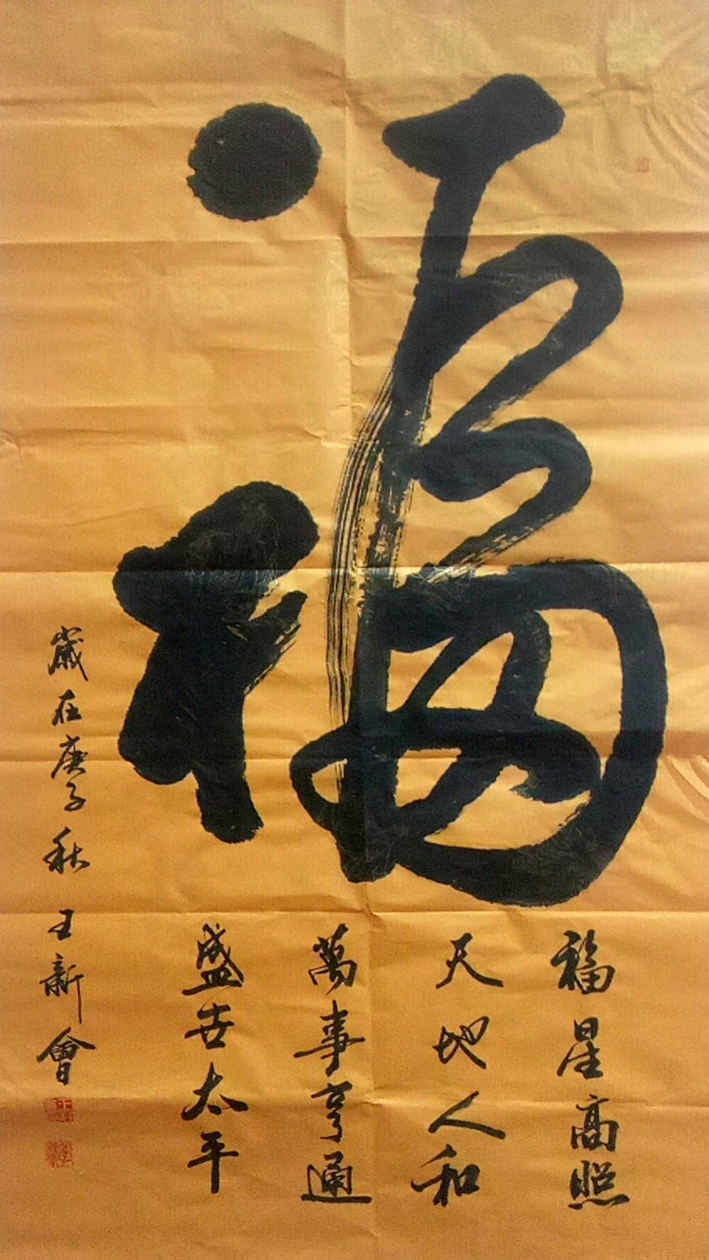 福
福星高照
天地人和
萬事亨通
盛世太平
歲在庚子秋王新會